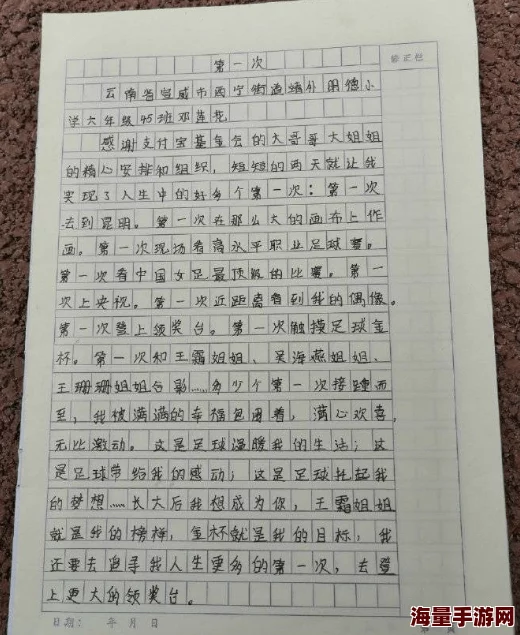 第一次
修正栏
云南省宣威市西宁街道靖外明德小
学六年级45班邓莲花
感谢支付宝基金会的大哥哥大姐姐
的精心安排和组织，短短的两天就让我
实现了人生中的好多个第一次：第一次
去到昆明。第一次在那么大的画布上作
画。第一次现场看高水平职业足球赛。
第一次看中国女足最顶级的比赛。第一
次上央视。第一次近距离看到我的偶像。
第一次登上领奖台。第一次触摸足球金
杯。第一次和王霜姐姐、吴海燕姐姐、
王珊珊姐姐合影……多少个第一次接踵而
至，我被满满的幸福包围着，满心欢喜，
无比激动。这是足球温暖我的生活；这
是足球带给我的感动；这是足球托起我
的梦想……长大后我想成为你，王霜姐姐
就是我的榜样，金杯就是我的目标，我
还要去追寻我人生更多的第一次，去登
上更大的领奖台。
日期： 年 月 日
海量手游网